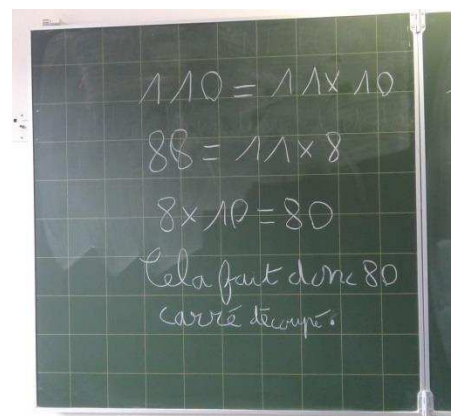 110 = 11 x 10
88 = 11 x 8
8 x 10 = 80
Cela fait donc 80
carré découpé.